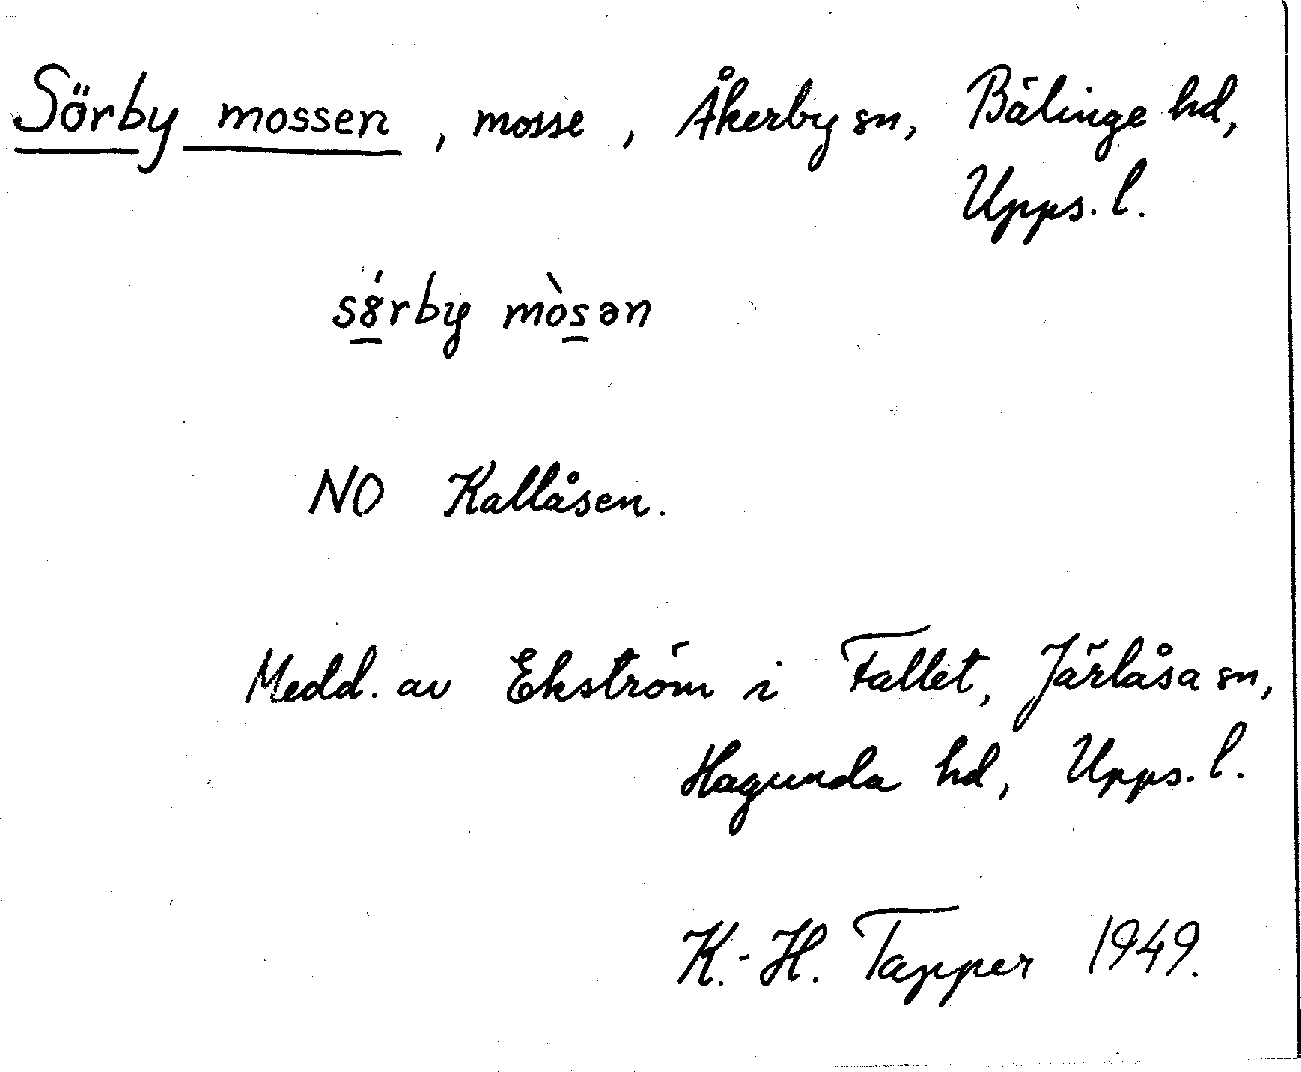 Sörby mossen, mosse, Åkerby sn, Bälinge hd,
Upps. l.
sȣ́rby mòsən
NO Kallåsen.
Medd. av Ekström i Fallet, Järlåsa sn,
Hagunda hd, Upps. l.
K.-H. Tapper 1949.